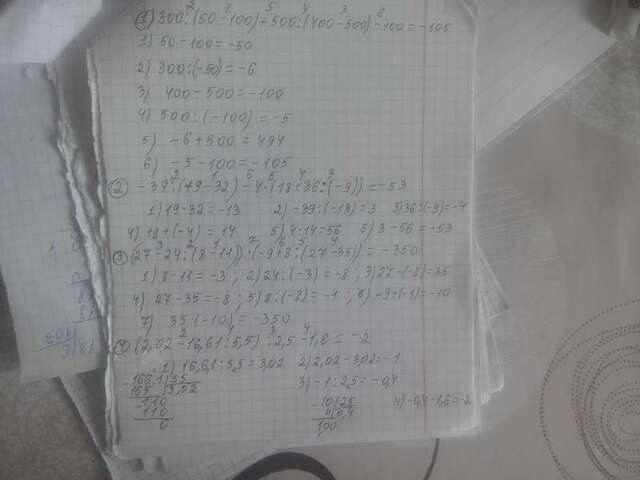 2 1 5 4 3 6
1 300:(50-100)+500:(400-500)-100=-105
1) 50-100=-50
2) 300:(-50)=-6
3) 400-500=-100
4) 500:(-100)=-5
5) -6+500=494
6) -5-100=-105
2 1 6 5 4 3
2 -39:(19-32)-4·(18+36:(-9))=-53
1) 19-32=-13 2) -39:(-13)=3 3) 36:(-9)=-4
4) 18+(-4)=14 5) 4·14=56 6) 3-56=-53
3 2 1 7 6 5 4
3 (27-24:(8-11))·(-9+8:(27-35))=-350
1) 8-11=-3; 2) 24:(-3)=-8; 3) 27-(-8)=35
4) 27-35=-8; 5) 8:(-8)=-1; 6) -9+(-1)=-10
7) 35·(-10)=-350
2 1 3 4
4 (2,02-16,61:5,5):2,5-1,6=-2
1) 16,61:5,5=3,02 2) 2,02-3,02=-1
-166,1|55 3) -1:2,5=-0,4
165 |3,02
-110 -10|25 4) -0,4-1,6=-2
110 0|0,4
0 100